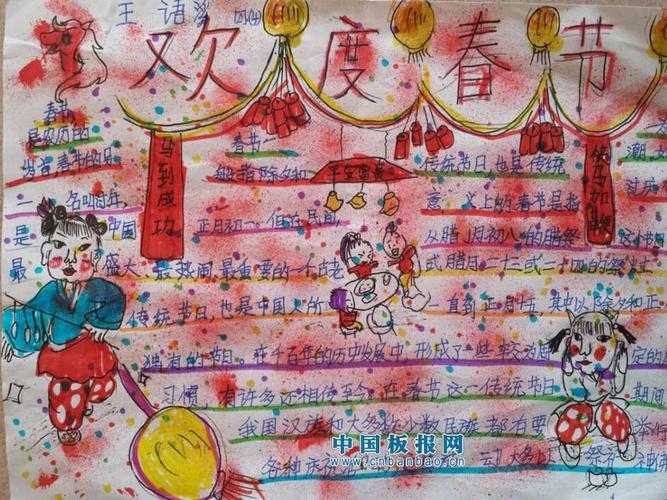 王语 四(4)
欢度春节
马到成功
平安富贵
快马如鞭
春节 春节一 传统节日也是传统 潮文
是农历的
岁首春节的另 般指除夕和 意义上的春节是指
一名叫过年, 从腊月初八的腊祭 这个节
是中国 正月初一。但在民间,
最盛大、最热闹、最重要的一个古老 式腊月二十三或二十四的祭灶
传统节日,也是中国人所 一直到正月十五,其中以除夕和正
独有的节日。在千百年的历史发展中,形成了一些较为 定的
习惯,有许多还相传至今。在春节这一传统节日 期间
我国汉族和大多数少数民族都有要 举行
各种 动大多以 祭祀 神佛
中国板报网
www.cnbanbao.cn